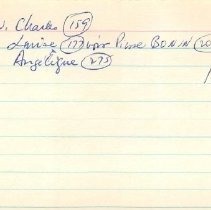 v. Charles (159)
Louise (177) voir Pierre BONIN (20
Angélique (275)